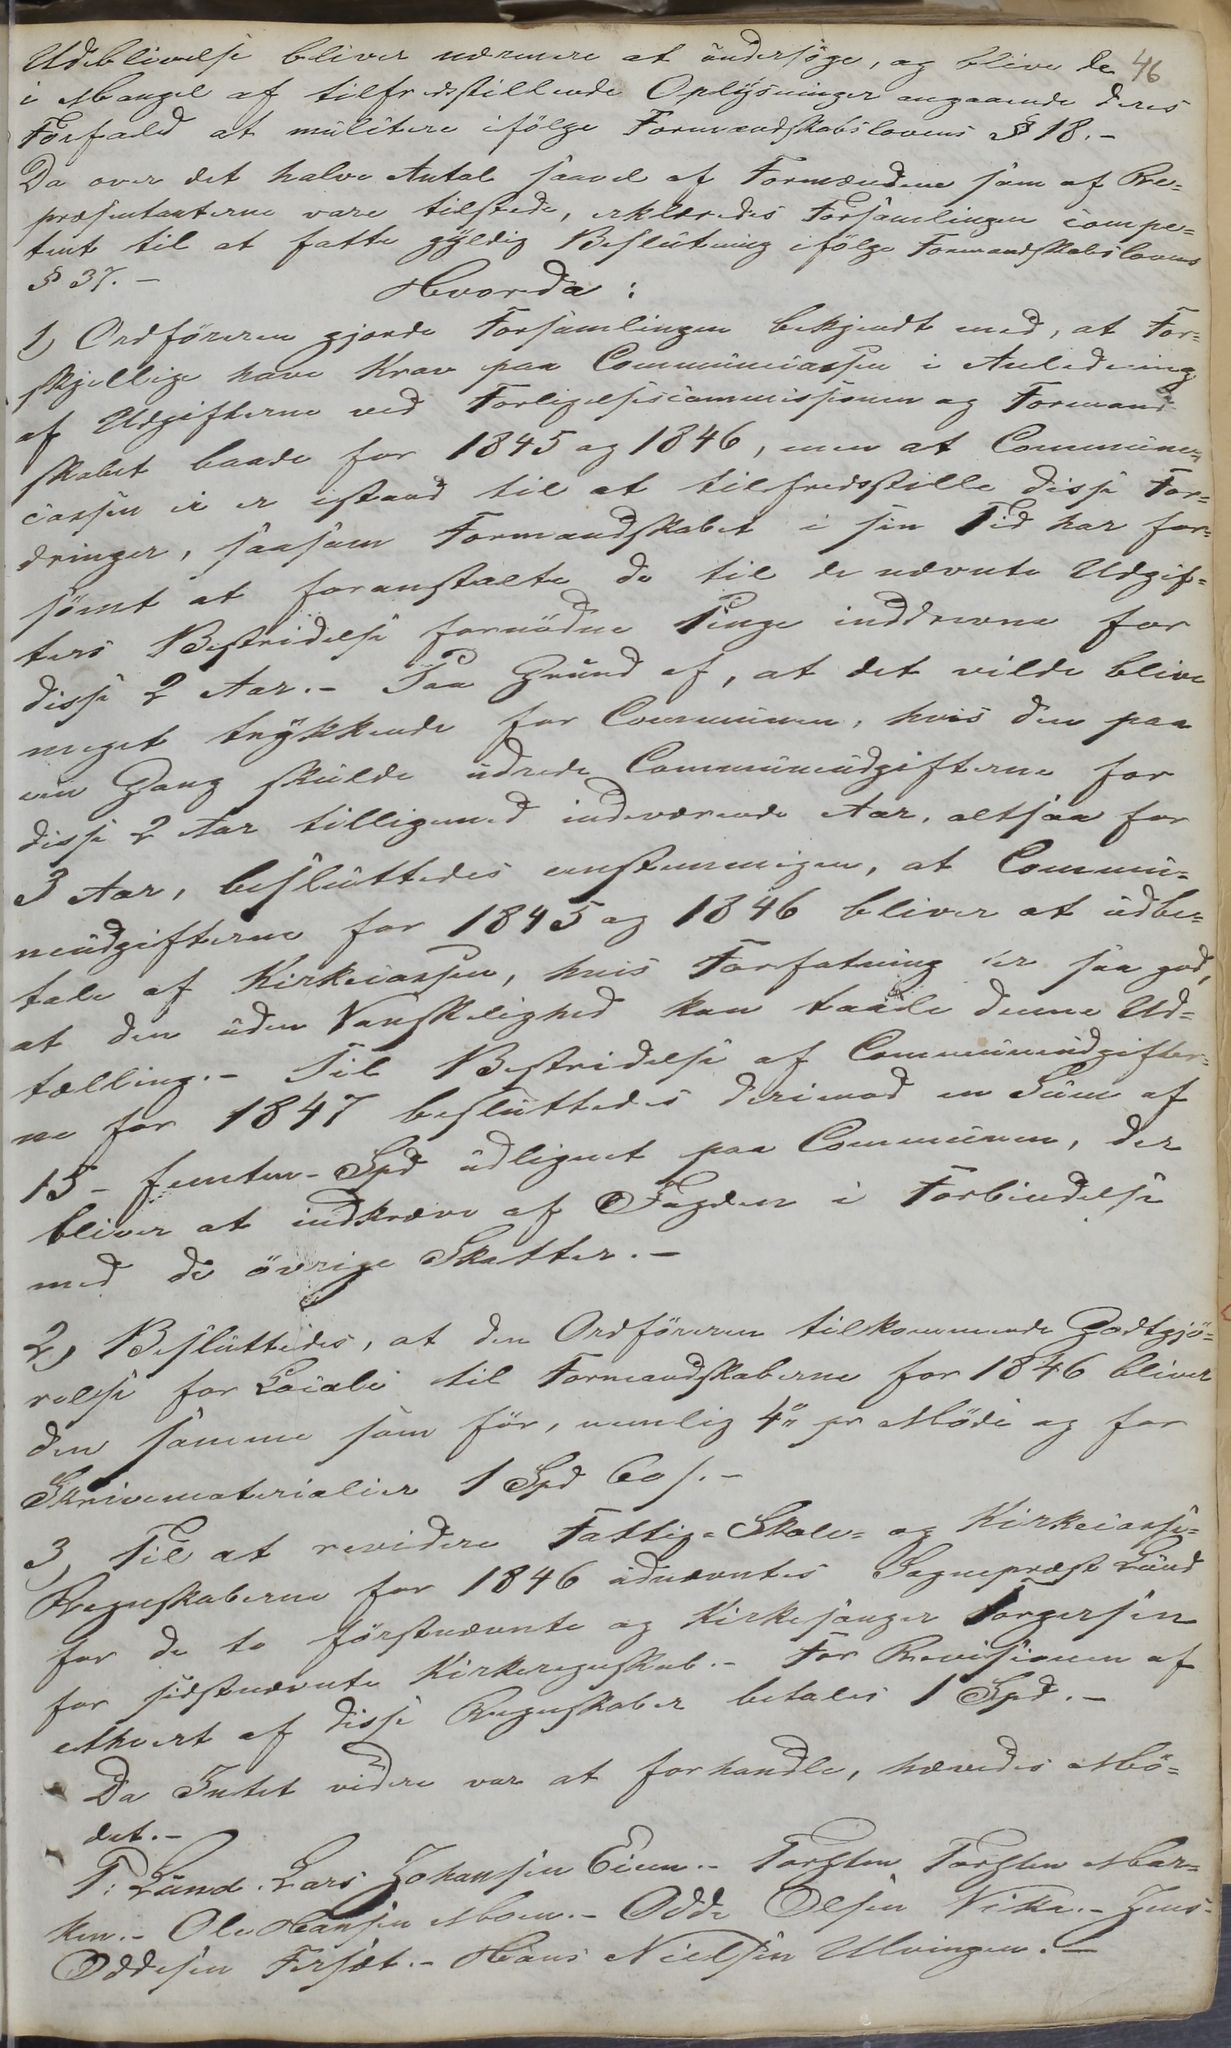 46
Udeblivelse bliver nærmere at undersøge, og blive de
i Mangel af tilfredsstillende Oplysninger angaaende deres
Forfald at mulktere ifölge Formandskabslovens § 18.-
Da over det halve Antal saavel af Formændene som af Re=
præsentanterne vare tilstede, erklæredes Forsamlingen compe=
tent til at fatte gyldig Beslutning ifölge Formandskabslovens
§ 37.-
Hvorda:
1) Ordföreren gjorde Forsamlingen bekjendt med, at For=
skjellige have Krav paa Communecassen i Anledning
af Udgifterne ved Forligelsescommissionen og Formand=
skabet baade for 1845 og 1846, men at Commune=
cassen ei er istand til at tilfredsstille disse For=
dringer, saasom Formandskabet i sin Tid har for=
sömt at foranstalte de til de nævnte Udgif=
ters Bestridelse fornödne Penge inddrevne for
disse 2 Aar.- Paa Grund af, at det vilde blive
meget trykkende for Communen, hvis den paa
een Gang skulde udrede Communeudgifterne for
disse 2 Aar tilligemed indeværende Aar, altsaa for
3 Aar, besluttedes eenstemmigen, at Commu=
neudgifterne for 1845 og 1846 bliver at udbe=
tale af Kirkecassen, hvis Forfatning er saa god,
at den uden Vanskelighed kan taale denne Ud=
tælling.- Til Bestridelse af Communeudgifter=
ne for 1847 besluttedes derimod en Sum af
15 - femten - Spd udlignet paa Communen, der
bliver at indkræve af Fogden i Forbindelse
med de övrige Skatter.-
2) Besluttedes, at den Ordföreren tilkommende Godtgjö=
relse for Locale til Formandskaberne for 1846 bliver
den samme som för, nemlig 4 pr Möde og for
Skrivematerialier 1 Spd 60 s.-
3) Til at revidere Fattig= Skole= og Kirkecasse=
Regnskaberne for 1846 udnævntes Sognepræst Lund
for de to förstnævnte og Kirkesanger Torgersen
for sidstnævnte Kirkeregnskab.- For Revisionen af
ethvert af disse Regnskaber betales 1 Spd.-
Da Intet videre var at forhandle, hævedes Mö=
det.-
T: Lund. Lars Johansen Eien.- Torsten Torsten Mar=
ken.- Ole Hansen Moen.- Odde Olsen Vika.- Jens
Oddesen Forset.- Hans Nielsen Ulvingen.-